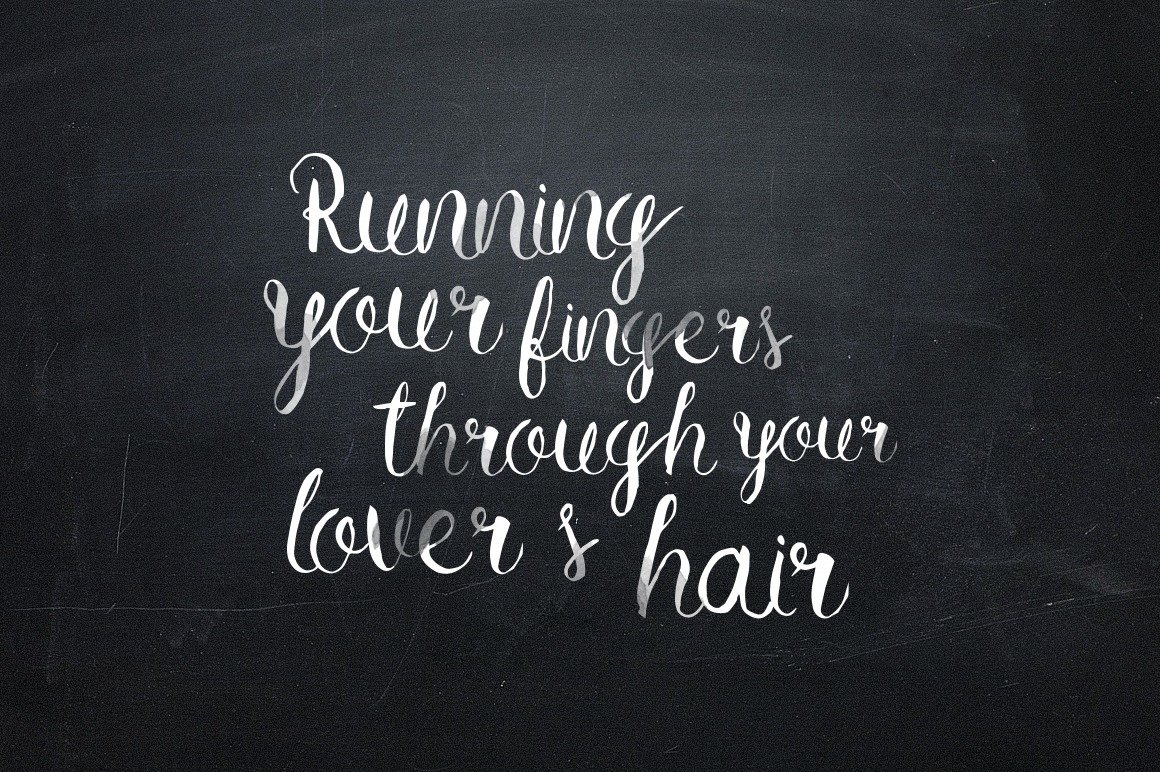 Running
your fingers
through your
lover s hair